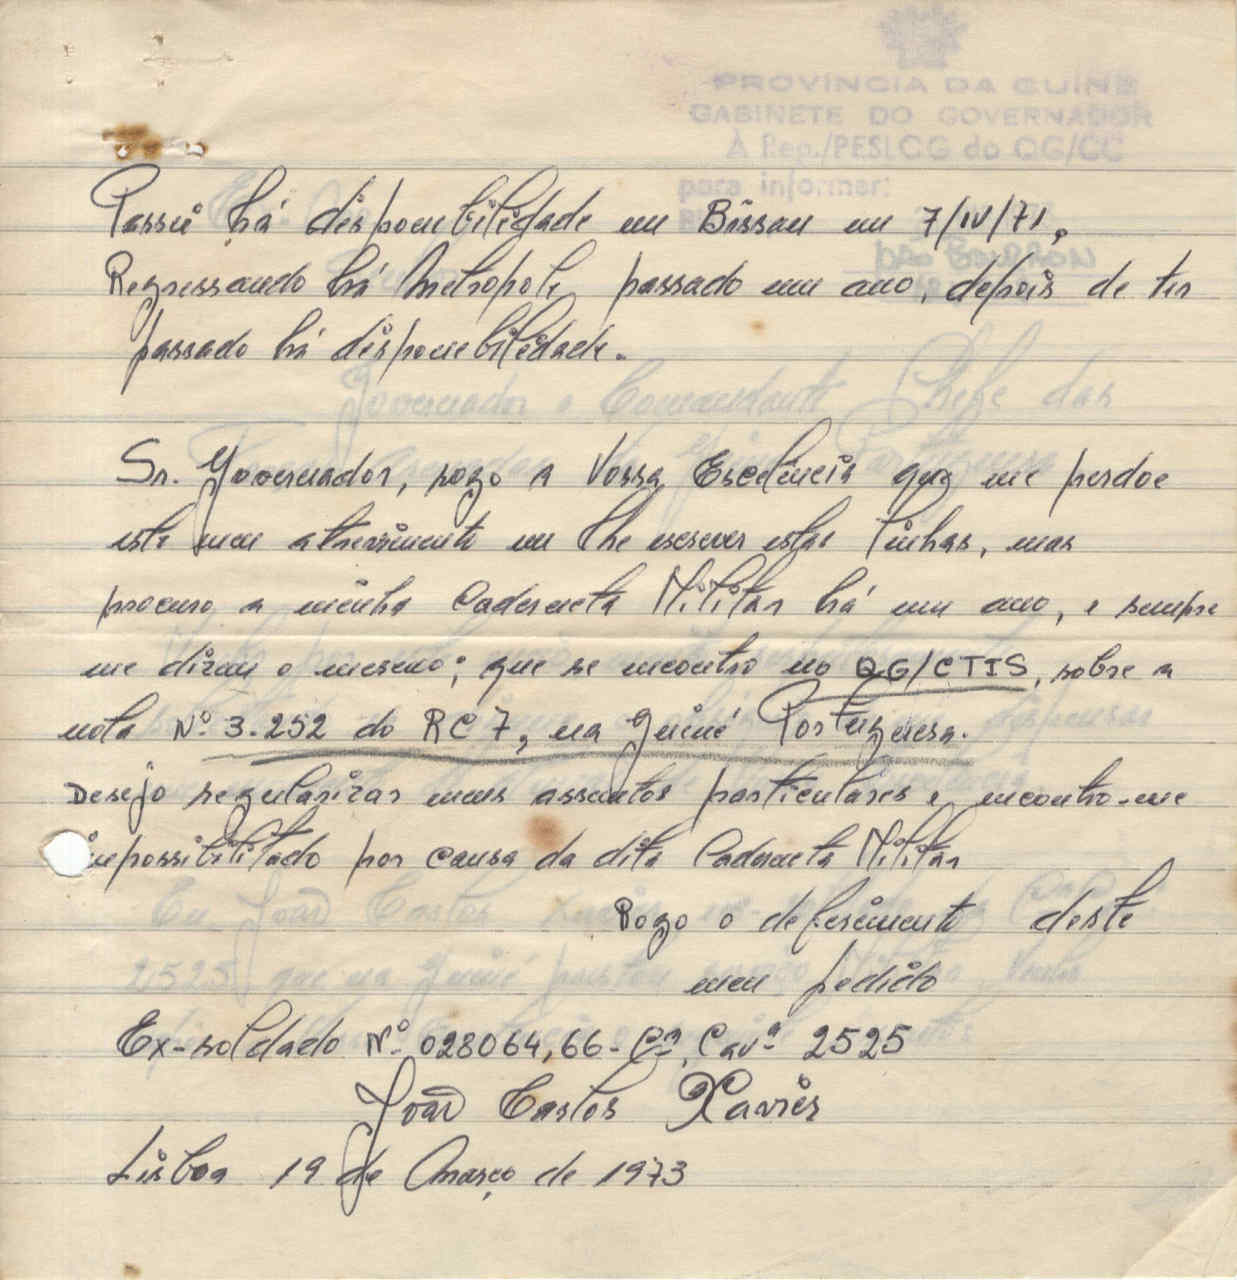 PROVÍNCIA DA GUINÉ
GABINETE DO GOVERNADOR
À Rep./PESLOG do QG/CC
para informar:
Passei há disponebilidade em Bissau em 7/IV/71,
Regressando há Metropole passado um ano, depois de ter
passado há disponebilidade.
Governador e Comandante Chefe das
Sr. Governador, rogo a Vossa Escelência que me perdoe
este meu atrevimento em lhe escrever estas linhas, mas
procuro a minha Caderneta Militar há um ano, e sempre
me dizem o mesmo; que se encontra no QG/CTIS, sobre a
nota Nº 3.252 do RC 7, na Guiné Portuguesa.
Desejo regularizar meus assuntos particulares e encontro-me
impossibilitado por causa da dita Caderneta Militar
Rogo o deferimento deste
meu pedido
Ex-soldado Nº 028064,66 - Cª. Cavª 2525
João Carlos Xavier
Lisboa 19 de Março de 1973